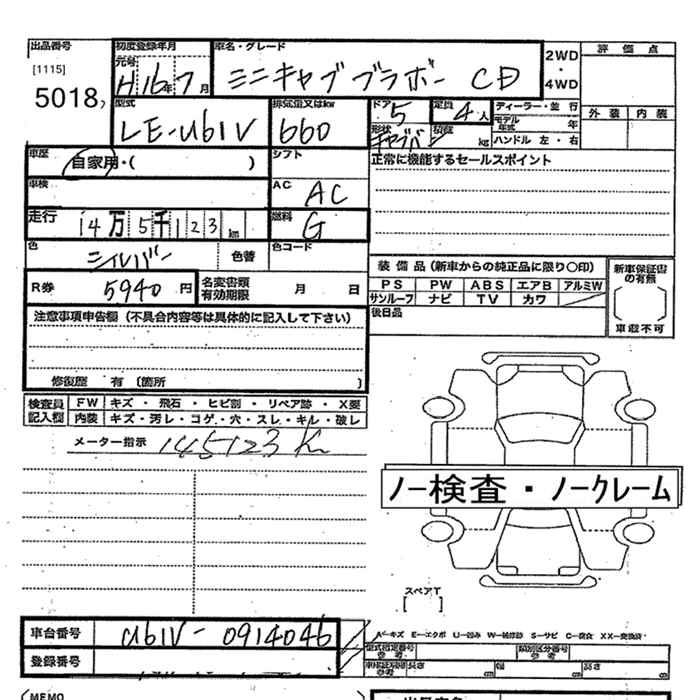 出品番号 初度登録年月 車名・グレード 評価点
[1115] 元号 H16年7月 ミニキャブブラボー CD 2WD・4WD
5018, 型式 排気量又はkw ドア 5 定員 4人 ディーラー・並行 外装 内装
LE-U61V 660 形状 積載 kg モデル年式 年
ハンドル 左・右
車歴 自家用・( ) シフト 正常に機能するセールスポイント
車検 AC AC
走行 14万5千123km 燃料 G
色 シルバー 色替 色コード
装備品(新車からの純正品に限り○印) 新車保証書の有無
R券 5940円 名変書類有効期限 月 日 PS PW ABS エアB アルミW
サンルーフ ナビ TV カワ
注意事項申告欄(不具合内容等は具体的に記入して下さい) 後日品 車載不可
修復歴 有 〔箇所 〕
検査員記入欄 FW キズ・飛石・ヒビ割・リペア跡・X要
内装 キズ・汚レ・コゲ・穴・スレ・キル・破レ
メーター指示 145123 K
ノー検査・ノークレーム
スペアT
[ ]
車台番号 U61V-0914046
A-キズ E-エクボ U-凹み W-補修跡 S-サビ C-腐食 XX-交換済
登録番号 型式指定番号 参考 類別区分番号 参考
長さ cm 幅 cm 高さ cm
(MEMO